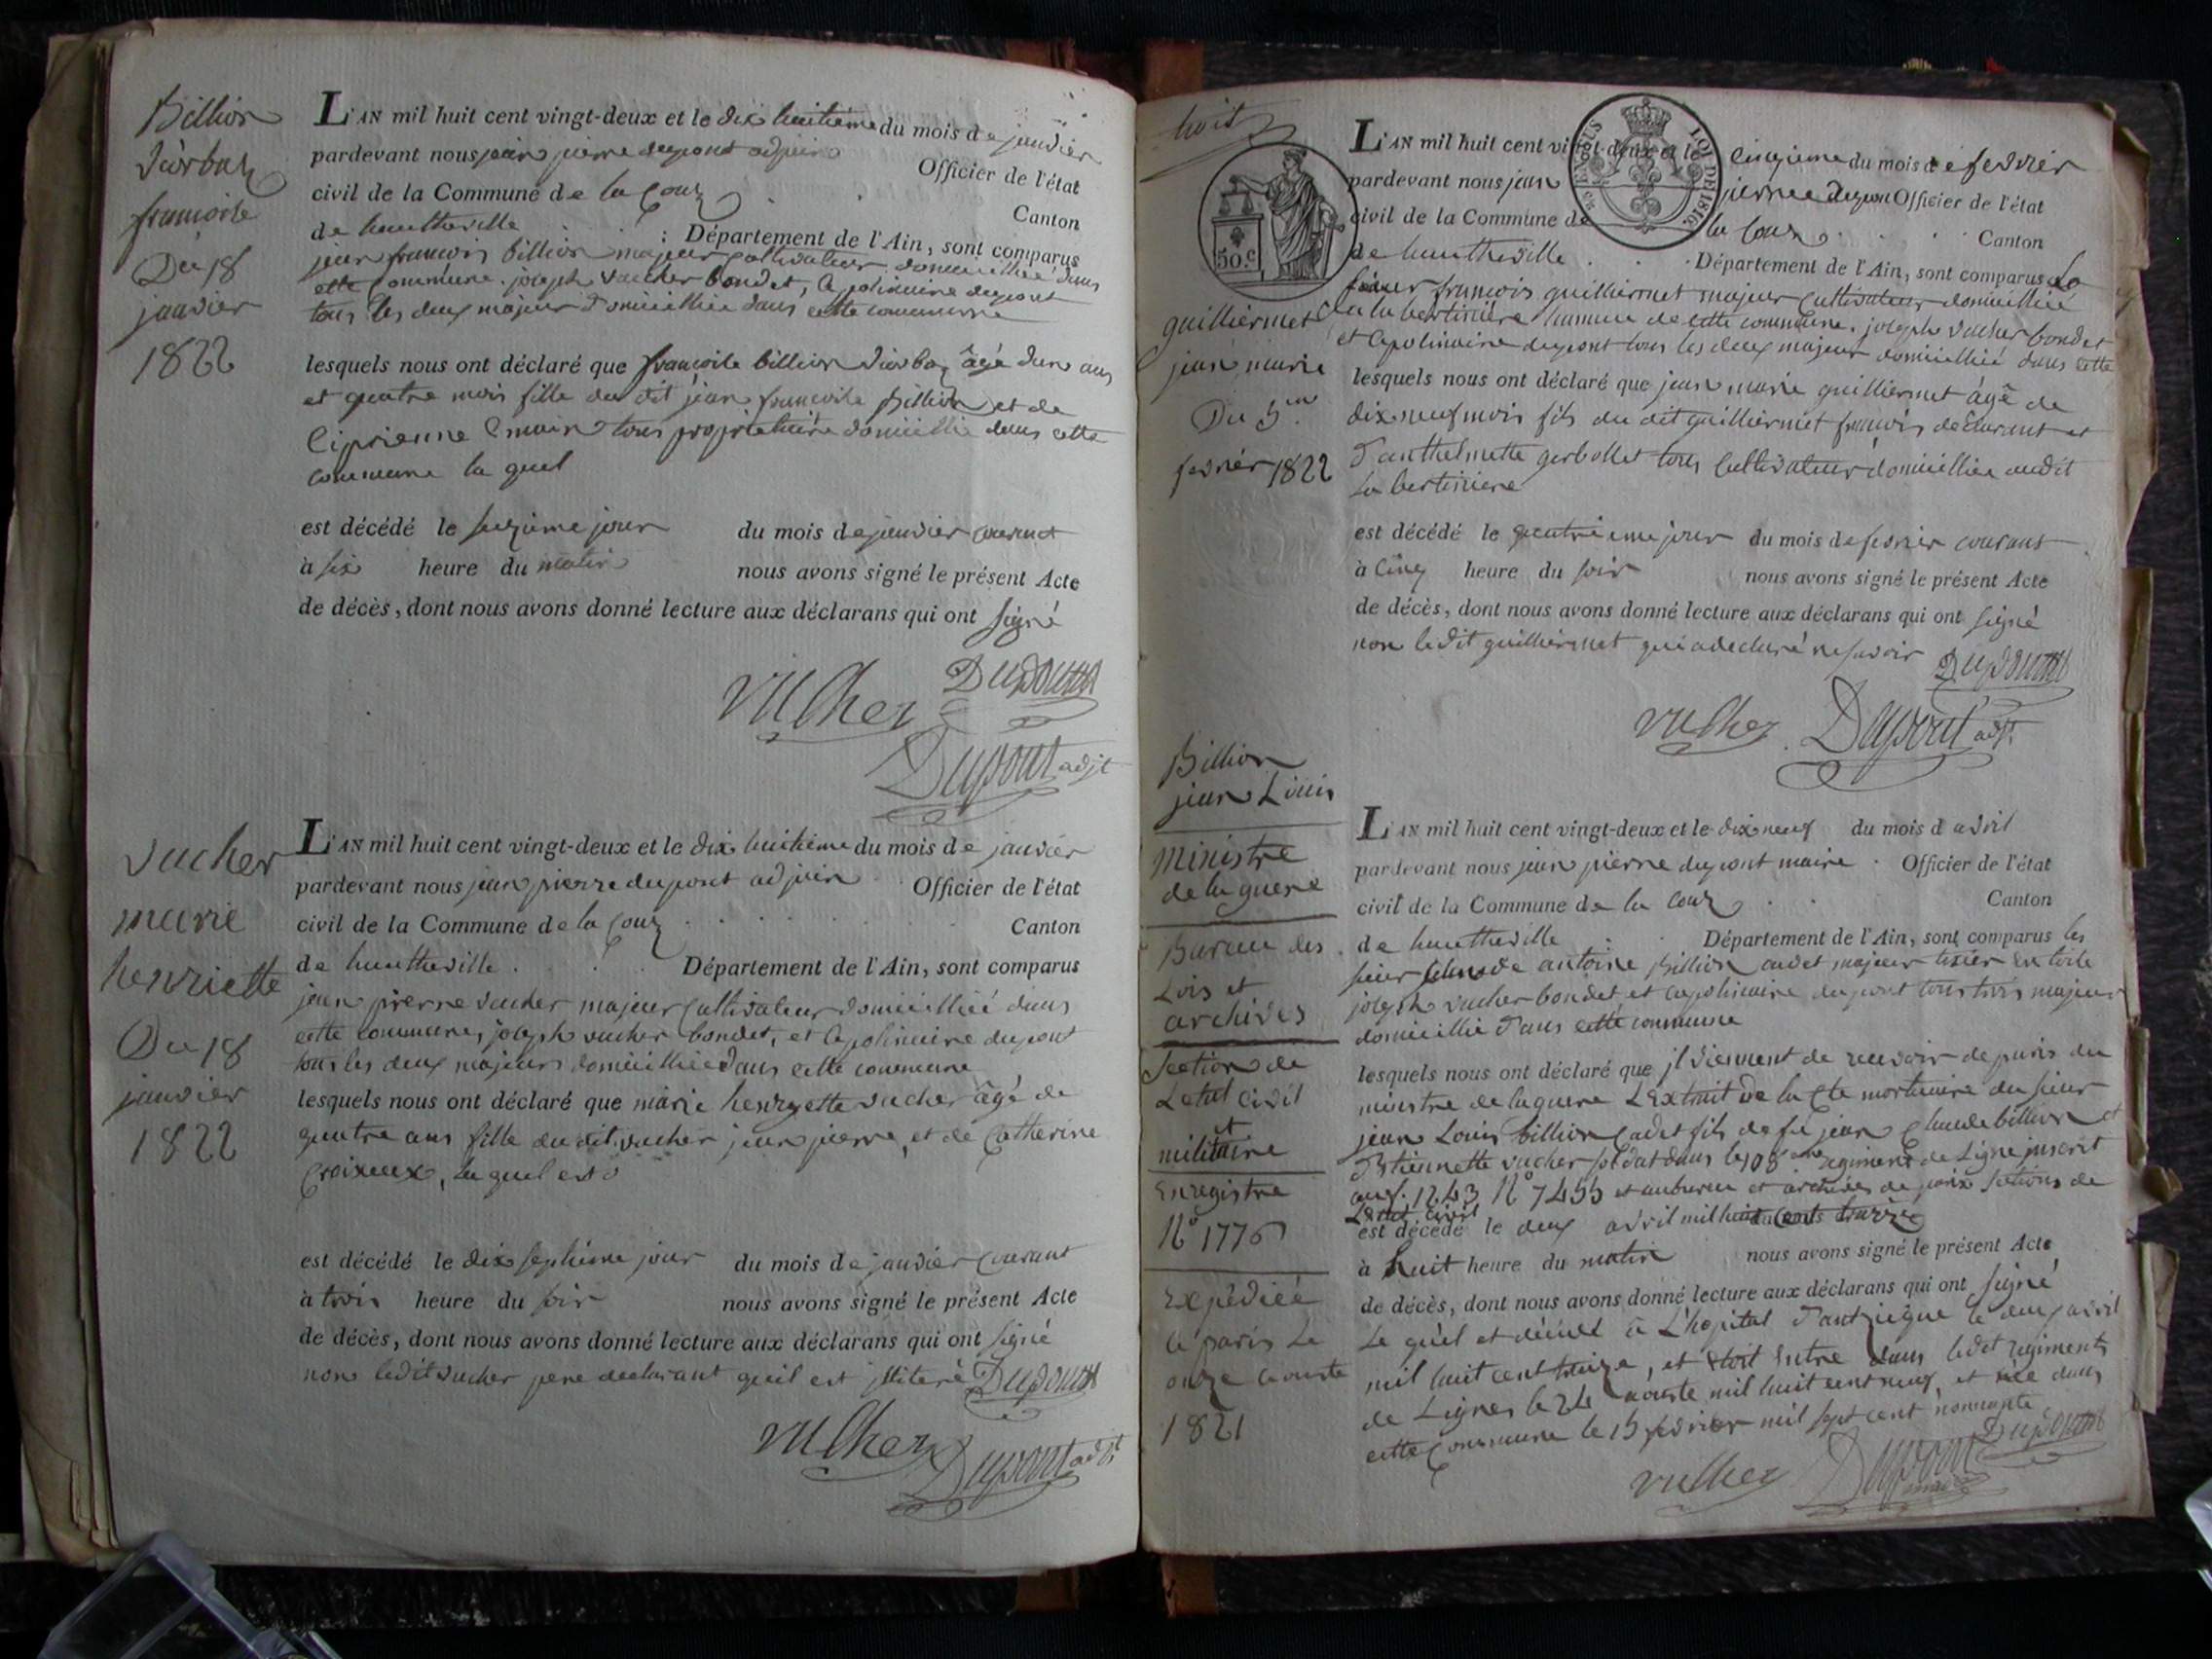 Billion
Durbaz
francoise
Du 18
janvier
1822
L'AN mil huit cent vingt-deux et le dix huitieme du mois de janvier
pardevant nous jean pierre dupont adjoin Officier de l'état
civil de la Commune de la Couz Canton
de hautteville Département de l'Ain, sont comparus
jean francois billion majeur cultivateur domicillié dans
cette commune. joseph vucher bondet, Apolinaire dupont
tous les deux majeur domicillié dans cette commune
lesquels nous ont déclaré que françoise billion âgé dun ans
et quatre mois fille du dit jean francoise Billion et de
Ciprienne tous propriétaire domicillié dans cette
commune la quel
est décédé le seizième jour du mois de janvier courant
à six heure du matin nous avons signé le présent Acte
de décès, dont nous avons donné lecture aux déclarans qui ont signé
vucher Dupount
Dupont adjt
vucher
marie
henriette
Du 18
janvier
1822
L'AN mil huit cent vingt-deux et le dix huitieme du mois de janvier
pardevant nous jean pierre dupont adjoin Officier de l'état
civil de la Commune de la Couz Canton
de hautteville Département de l'Ain, sont comparus
jean pierre vucher majeur cultivateur domicillié dans
cette commune, joseph vucher bondet, et Apolinaire dupont
tous les deux majeurs domicillié dans cette commune
lesquels nous ont déclaré que marie henryette vucher âgé de
quatre ans fille du dit vucher jean pierre, et de Catherine
Croixeux, la quel est
est décédé le dix septieme jour du mois de janvier courant
à trois heure du soir nous avons signé le présent Acte
de décès, dont nous avons donné lecture aux déclarans qui ont signé
non ledit vucher pere declarant quil est illiteré Dupount
vucher Dupont adjt
huit
50.c
LOI DE 1816.
guilliermet
jean marie
Du 5.me
fevrier 1822
L'AN mil huit cent vingt-deux et le cinqieme du mois de fevrier
pardevant nous jean pierre dupon Officier de l'état
civil de la Commune de la Couz Canton
de hautteville Département de l'Ain, sont comparus Le
sieur francois guilliermet majeur cultivateur domicillié
a la bertiniere hameu de cette commune. joseph vucher bondet
et Apolinaire dupont tous les deux majeur domicillié dans cette
lesquels nous ont déclaré que jean marie guilliermet âgé de
dix neuf mois fils du dit guilliermet francois declarant et
d'anthelmette gerbollet tous cultivateur domicillié audit
La bertiniere
est décédé le quatrieme jour du mois de fevrier courant
à cinq heure du soir nous avons signé le présent Acte
de décès, dont nous avons donné lecture aux déclarans qui ont signé
non ledit guilliermet qui a declaré ne savoir Dupount
vucher Dupont adjt
Billion
jean Louis
Ministre
de la guere
Bureau des
Lois et
archives
Section de
Letat civil
et
militaire
Enregistre
N° 1776
Expédiée
a paris Le
onze aouste
1821
L'AN mil huit cent vingt-deux et le dix neuf du mois d avril
pardevant nous jean pierre dupont maire Officier de l'état
civil de la Commune de la Couz Canton
de hautteville Département de l'Ain, sont comparus les
sieur antoine Billion cadet majeur tixier en toile
joseph vucher bondet et Apolinaire dupont tous trois majeur
domicillié dans cette commune
lesquels nous ont déclaré que jl viennent de recevoir de paris du
ministre de la guere L'Extrait de la cte mortuaire du sieur
jean Louis billion cadet fils de fu jean Claude billion et
d'Etiennette vucher soldat dans le 108me regiment de Ligne inscrit
au f. 1243 N° 7455 et au bureau et archives de paris sections de
Letat civil
est décédé le deux avril mil huit cents traize
à huit heure du matin nous avons signé le présent Acte
de décès, dont nous avons donné lecture aux déclarans qui ont signé
Le quel et décédé à L'hopital le deux avril
mil huit cent traize, et etoit entre dans ledet regiments
de Lignes le 24 aouste mil huit cent neuf, et née dans
cette commune le 15 fevrier mil sept cent nonnante
Dupount
vucher Dupont maire